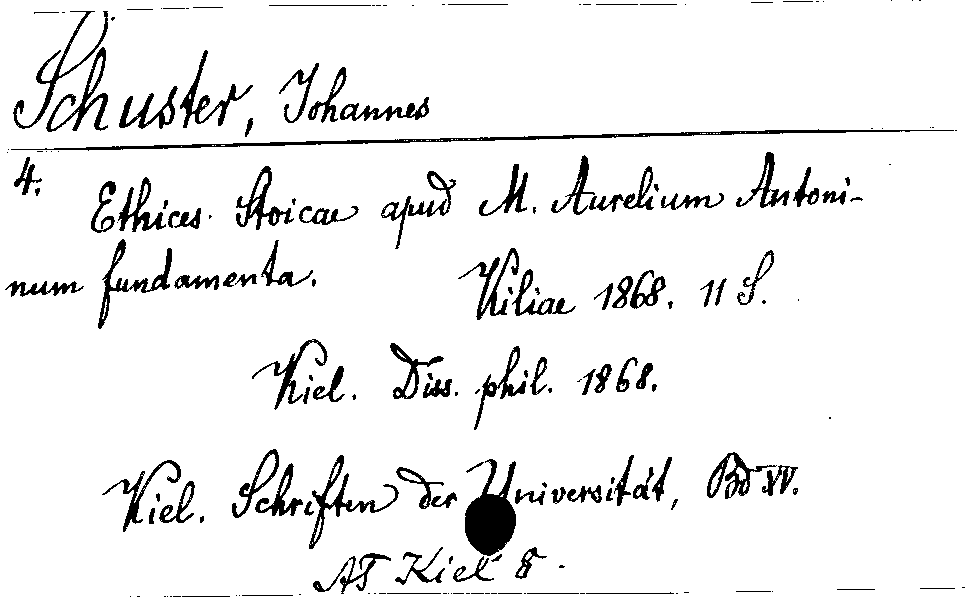 Schuster, Johannes
4.
Ethices Stoicae apud M. Aurelium Antoni-
num fundamenta.
Kiliae 1868. 11 S.
Kiel. Diss. phil. 1868.
Kiel. Schriften der Universität, Bd XV.
AT Kiel 8.